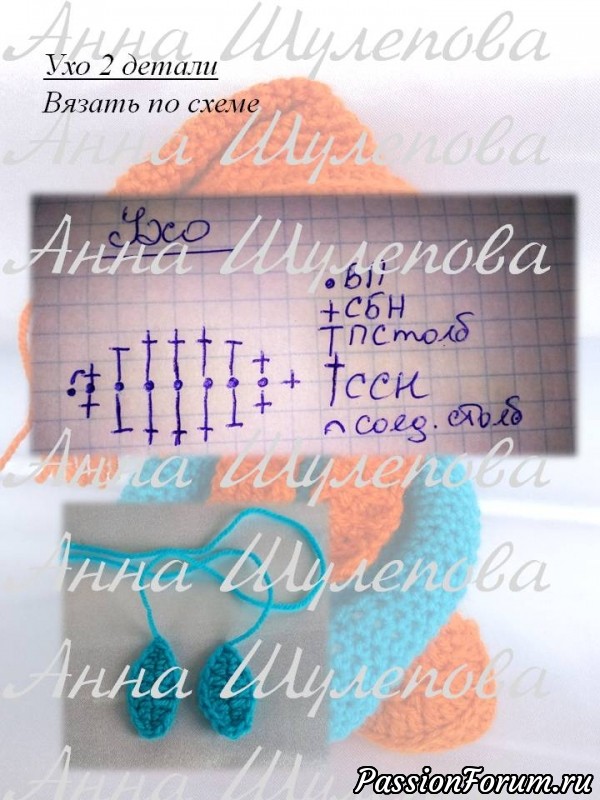 Анна Шулепова
Ухо 2 детали
Вязать по схеме
Анна Шулепова
Ухо
Анна Шулепова
• БП
+ СБН
Т ПСтолб
† ССН
∩ соед. столб
Анна Шулепова
Анна Шулепова
Анна Шулепова
Анна Шулепова
PassionForum.ru